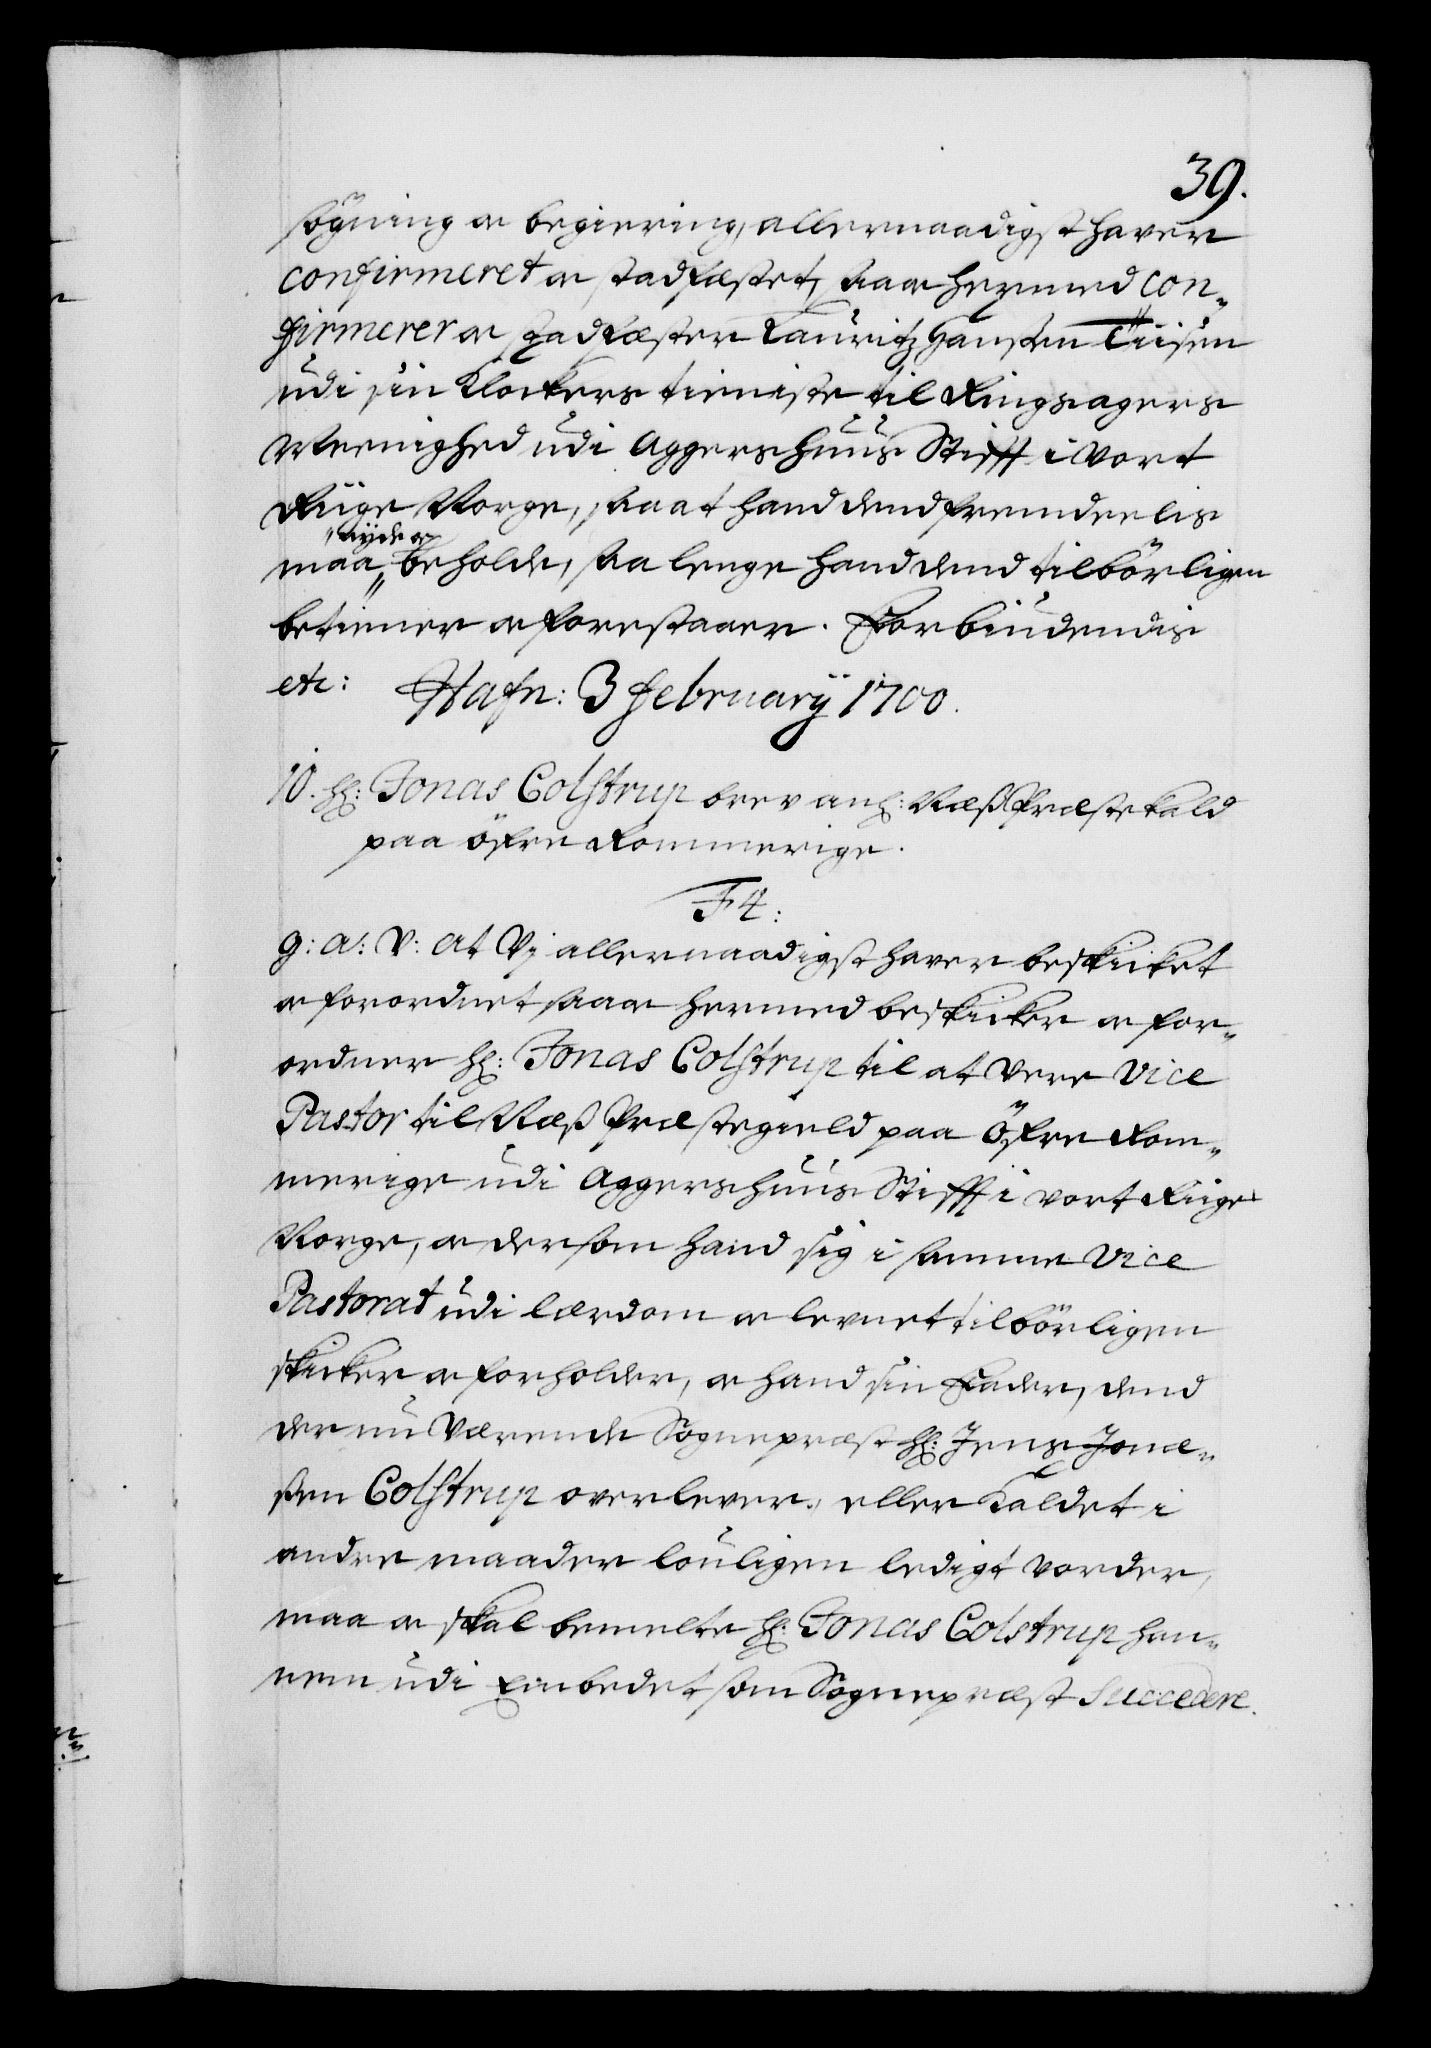 39.
søgning oc begiering, allernaadigst hafver
confirmeret oc stadfæstet, saa oc hermed con-
firmerer oc stadfæster Lauritz Hansøn Tiisen
udi sin Klockers tieniste til Ringsagers
Meenighed udi Aggershuus Stifft i vort
Riige Norge, saa at hand dend fremdeelis
nyde oc
maa beholde, saa lenge hand dend tilbørligen
betiener oc forestaaer. Forbiudendis
etc: Hafn: 3 february 1700.
10. Hr: Jonas Colstrup brev anl: Næss Præstekald
paa Øfre Rommerige.
F 4:
G: A: V: At Vj allernaadigst hafver beskicket
oc forordnet, saa oc hermed beskicker oc for-
ordner Hr: Jonas Colstrup til at være Vice
Pastor til Næss Præstegield paa Øfre Rom-
merige udi Aggershuus Stifft i vort Riige
Norge, oc dersom hand sig i samme Vice
Pastorat udi lærdom oc levnet tilbørligen
skicker oc forholder, oc hand sin Fader, dend
der nu Værende Sognepræst Hr: Jens Jonæ-
søn Colstrup overlever, eller Kaldet i
andre maader louligen ledigt vorder,
maa oc skal bemelte Hr: Jonas Colstrup han-
nem udi Embedet som Sognepræst Succedere.